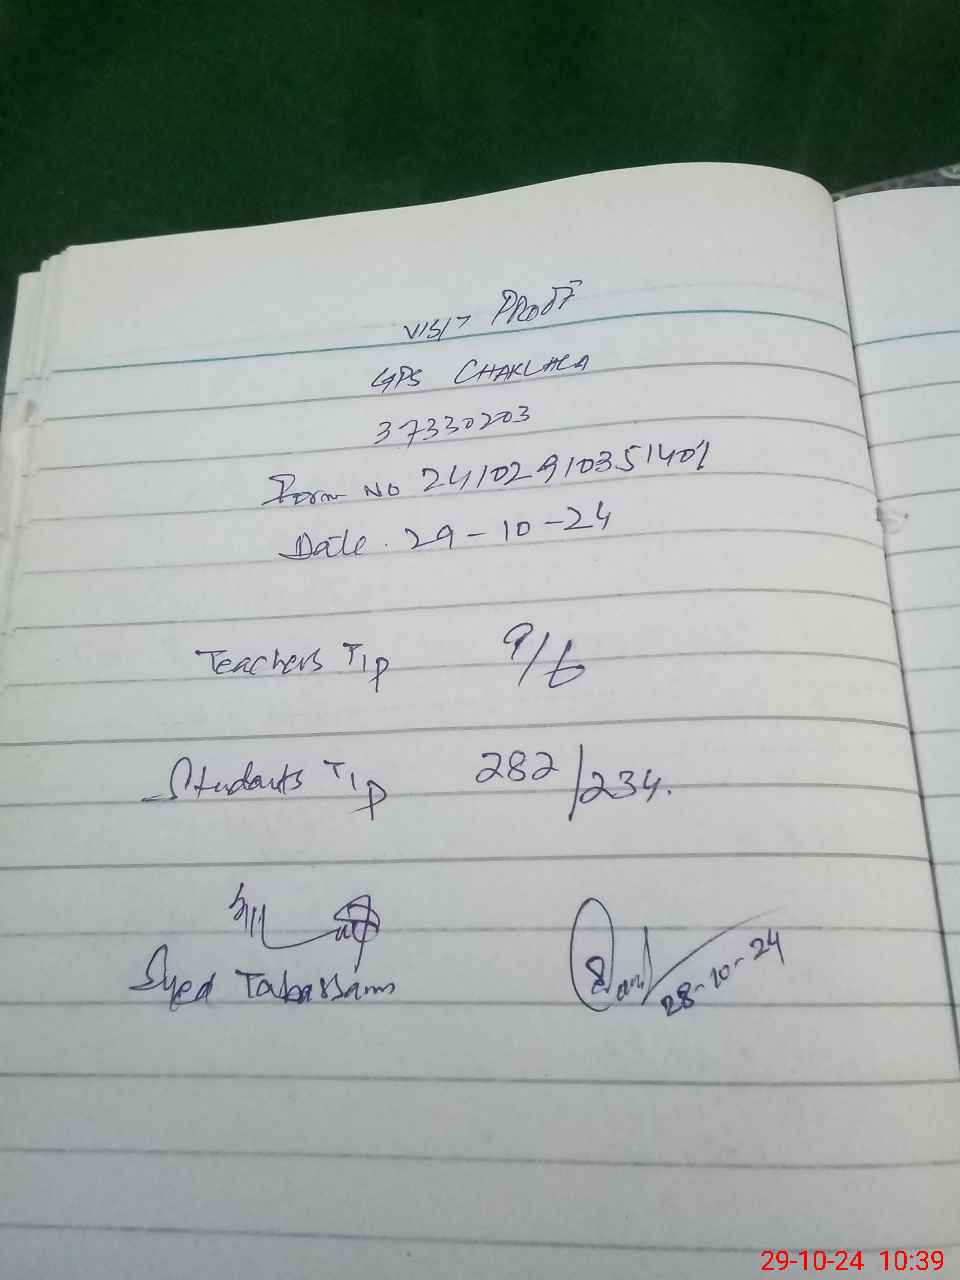 VISIT PROOF
GPS CHAKLALA
37330203
Form No 24102910351401
Date. 29-10-24
Teachers T/P 9/6
Students T/P 282/234.
Syed Tabassam
28-10-24
29-10-24 10:39